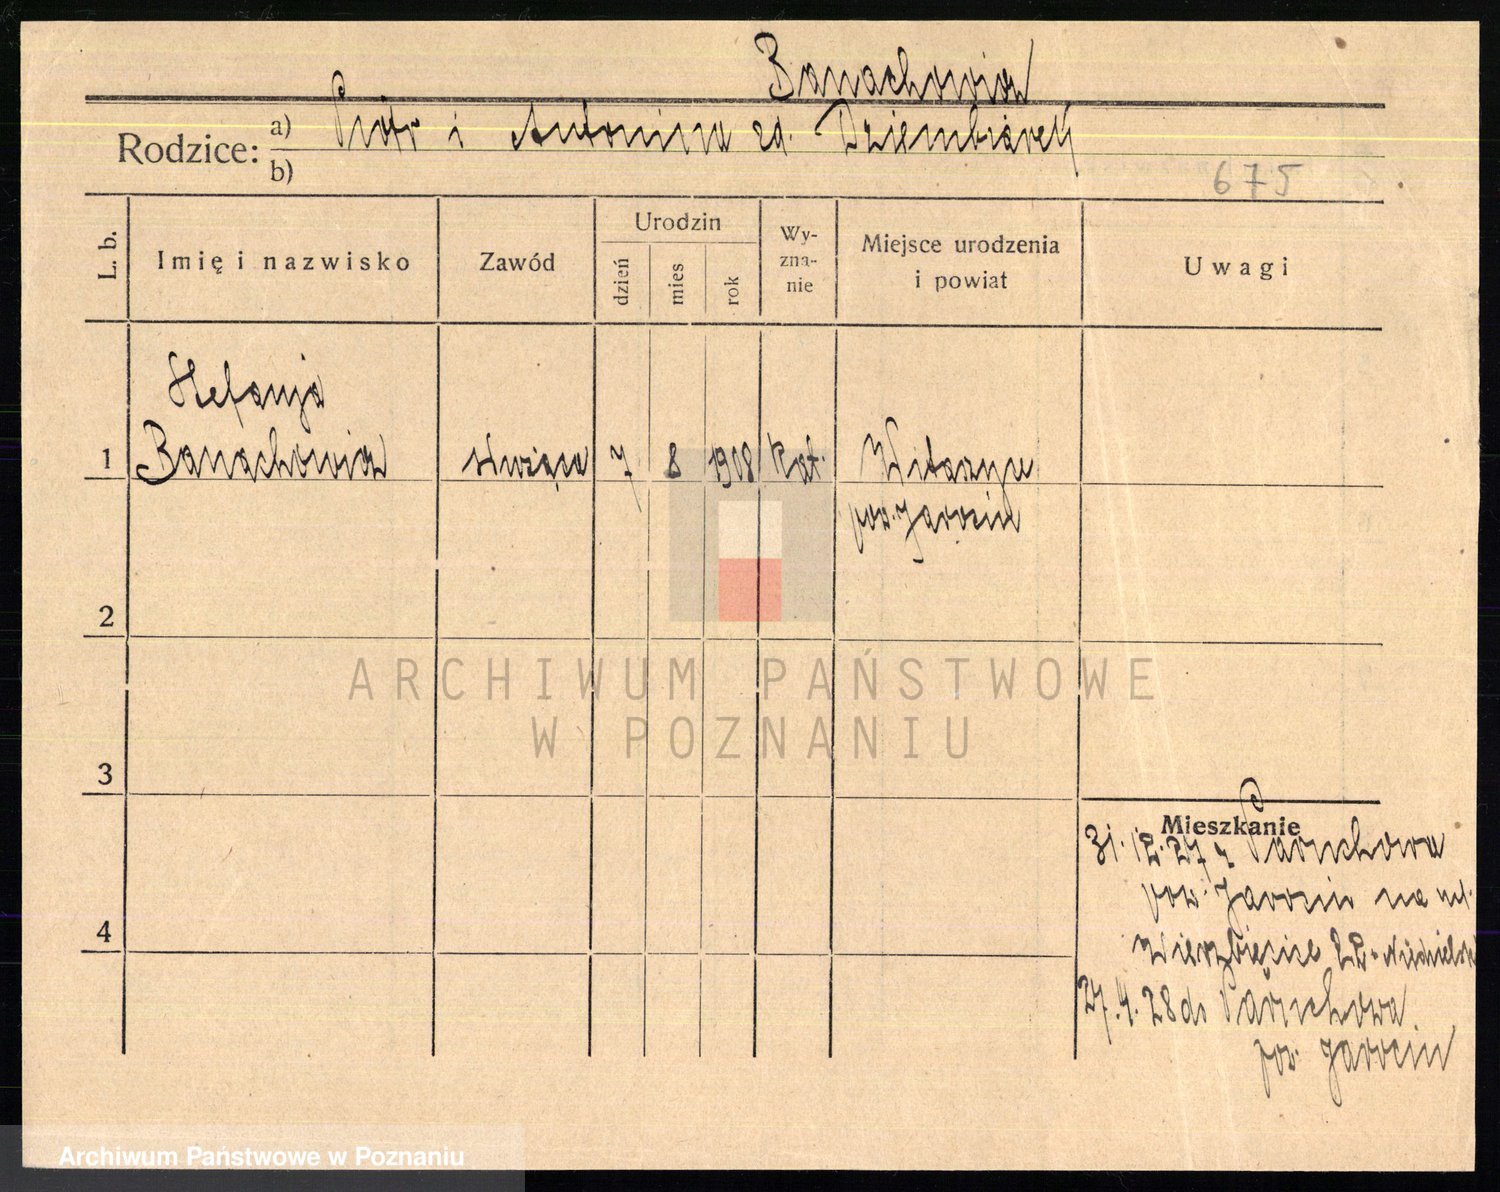 Banachowia
Rodzice: a) Piotr i Antonina zd. Dziembiarek
b)
675
L. b.
Imię i nazwisko
Zawód
Urodzin
dzień
mies
rok
Wy-
zna-
nie
Miejsce urodzenia
i powiat
Uwagi
Stefanja
1 Banachowia służąca 7 8 1908 kat. Witaszyce
pow. Jarocin
2
3
4
Mieszkanie
31.12.27 z Paruchowa
pow. Jarocin na ul.
Wierzbięcice
27.4.28 do Paruchowa
pow. Jarocin
ARCHIWUM PAŃSTWOWE
W POZNANIU
Archiwum Państwowe w Poznaniu